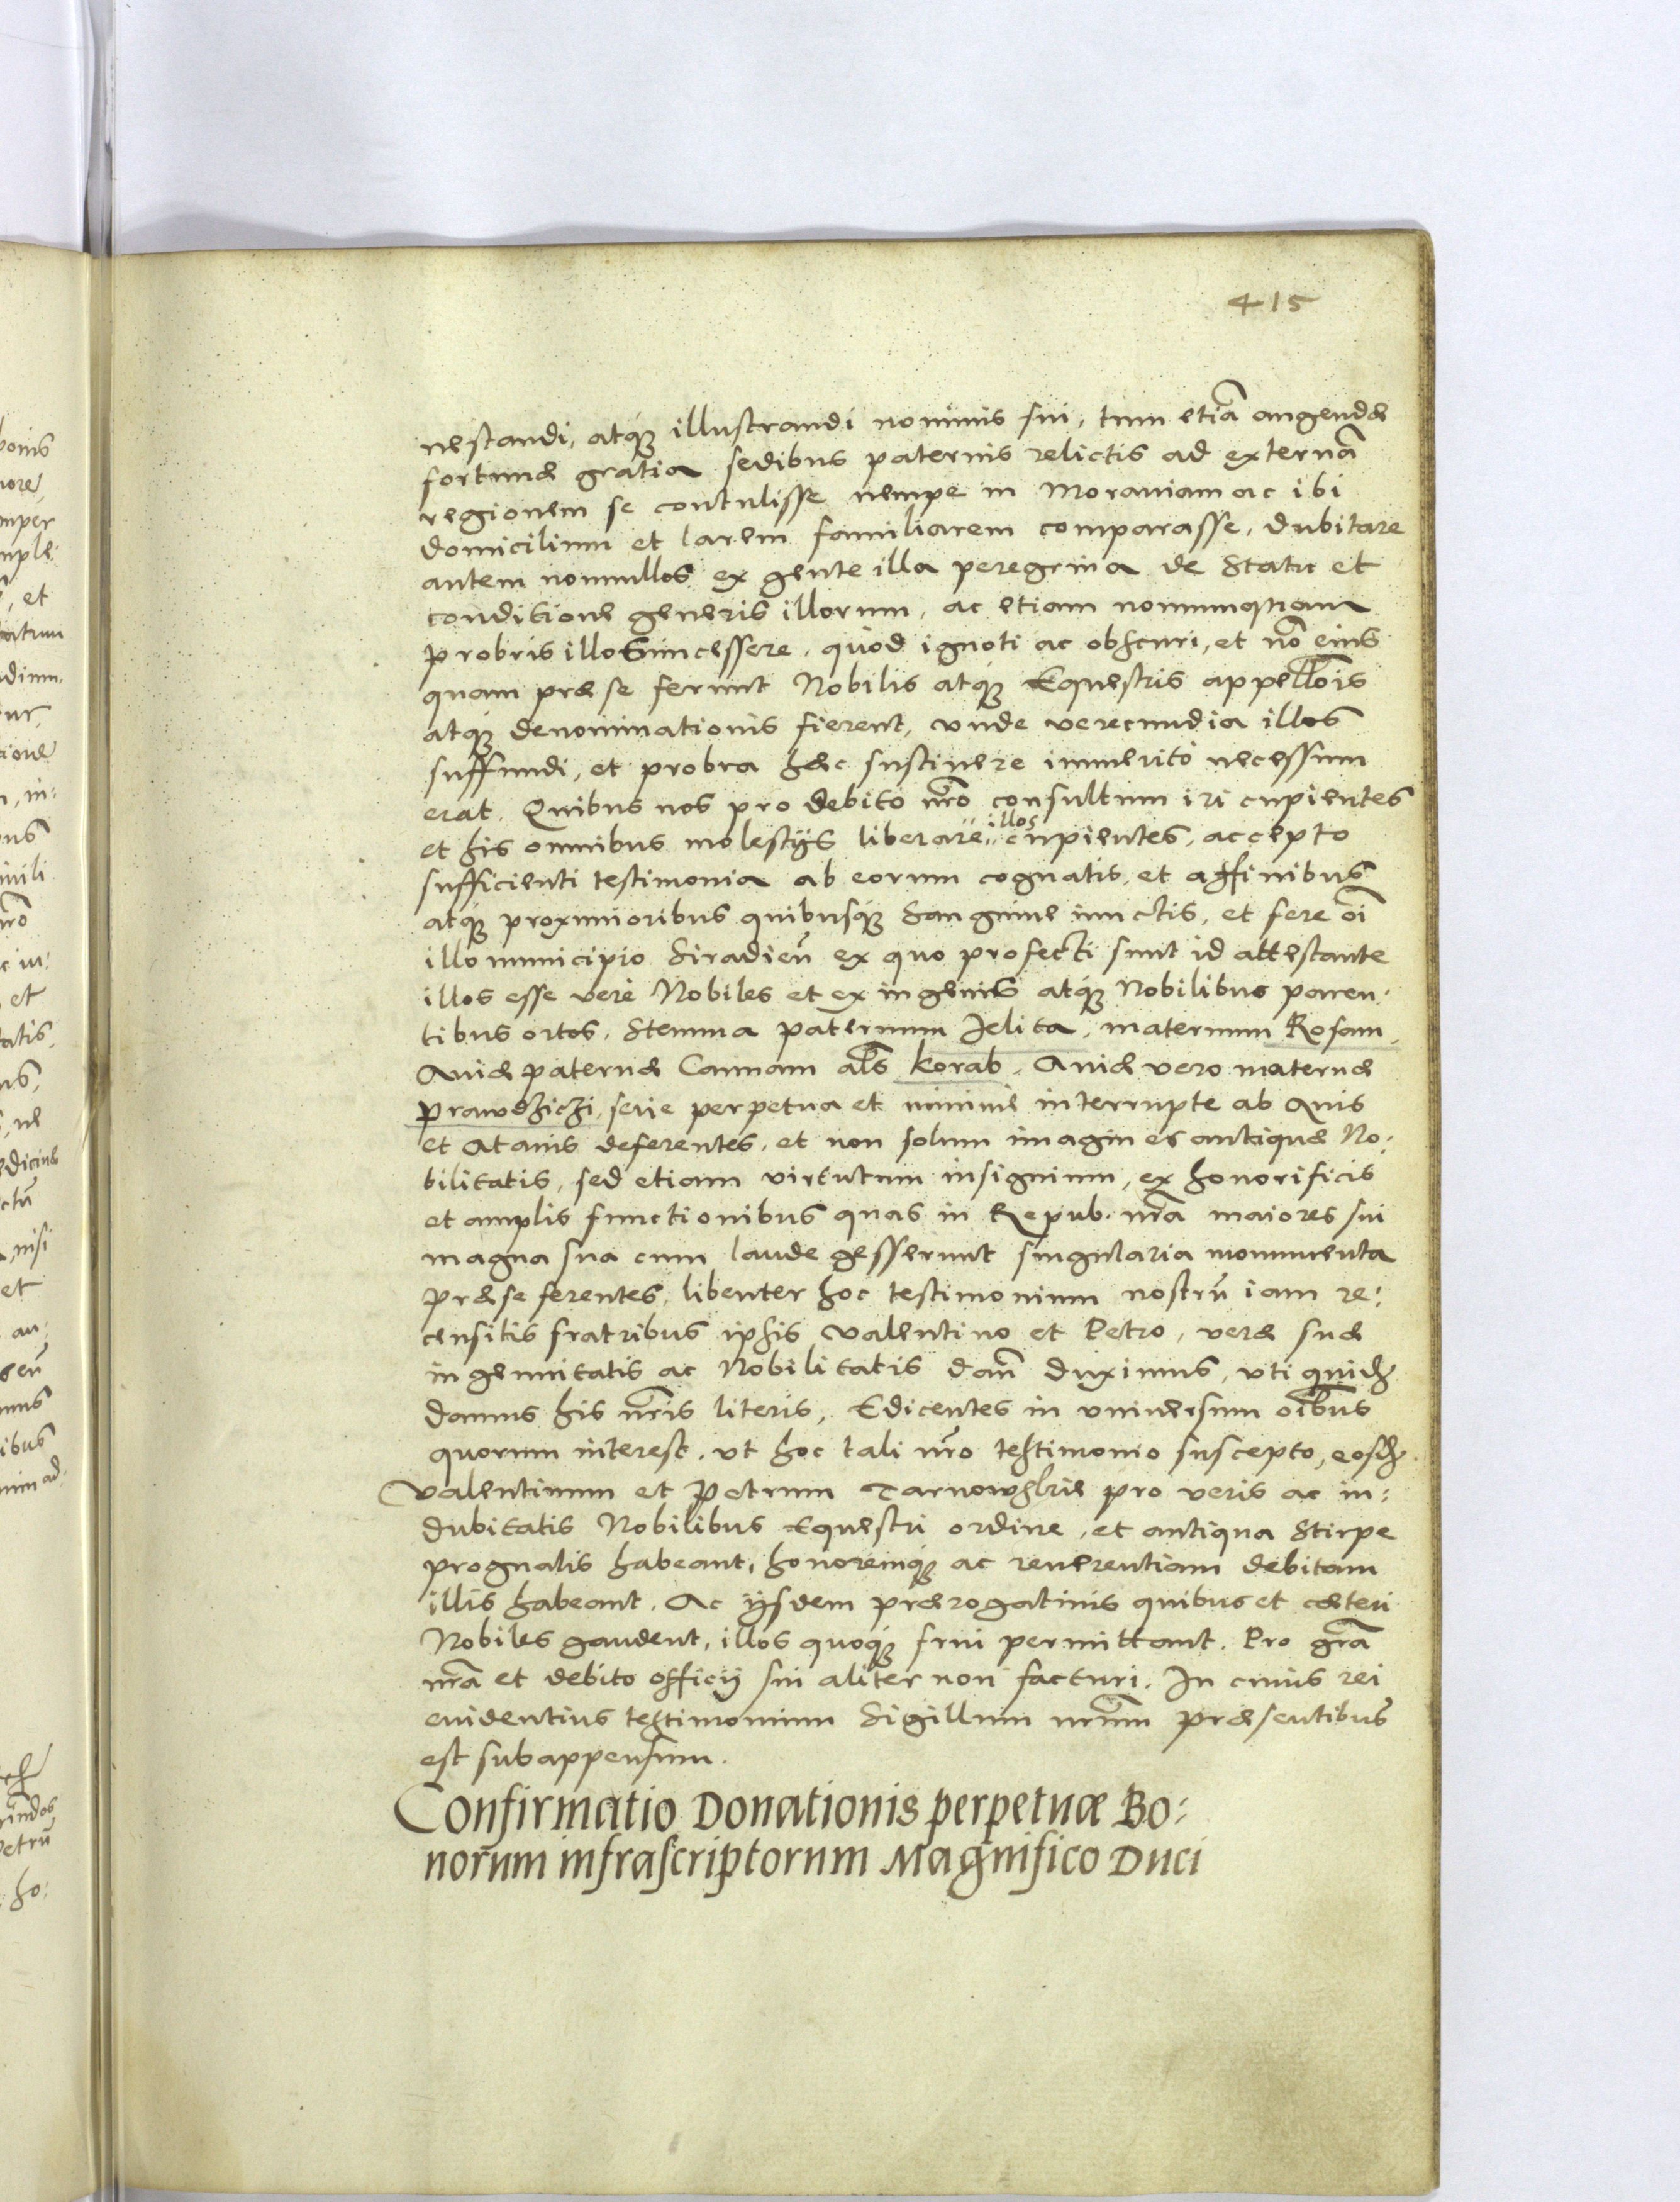 415
nestandi, atque illustrandi nominis sui, tum etiã augendæ
fortunæ gratia sedibus paternis relictis ad externã
regionem se contulisse nempe in Morauiam ac ibi
domicilium et larem familiarem comparasse, dubitare
autem nonnullos ex gente illa peregrina de statu et
conditione generis illorum, ac etiam nonnunquam
probris illos incessere, quòd ignoti ac obscuri, et nõ eius
quam præ se ferunt Nobilis atque Equestris appellõis
atque denominationis fierent, vnde verecundia illos
suffundi, et probra hæc sustinere immeritò necessum
erat. Quibus nos pro debito nr̃o consultum iri cupientes
et his omnibus molestijs liberare illos cupientes, accepto
sufficienti testimonia ab eorum cognatis, et affinibus
atque proximioribus quibusque sanguine iunctis, et fere oĩ
illo municipio Siradieñ ex quo profecti sunt id attestante
illos esse verè Nobiles et ex ingenuis atque Nobilibus paren:
tibus ortos, Stemma paternum Jelita, maternum Rosam,
Auiæ paternæ Cannam al̃s Korab, Auiæ vero maternæ
Prawdzicżi, serie perpetua et minime interrupte ab Auis
et Atauis deferentes, et non solum imagines antiquæ No:
bilitatis, sed etiam virtutum insignium, ex honorificis
et amplis functionibus quas in Repub. nr̃a maiores sui
magna sua cum laude gesserunt singularia monumenta
præ se ferentes, libenter hoc testimonium nostrũ iam re:
censitis fratribus ipsis Valentino et Petro, veræ suæ
ingenuitatis ac Nobilitatis dañ duximus, vti quidem
damus his nr̃is literis, Edicentes in vniuersum oĩbus
quorum interest, ut hoc tali nr̃o testimonio suscepto, eosdem
Valentinum et Petrum Tarnowskie pro veris ac in:
dubitatis Nobilibus Equestri ordine, et antiqua Stirpe
prognatis habeant, honoremque ac reuerentiam debitam
illis habeant. Ac ijsdem prærogatiuis quibus et cæteri
Nobiles gaudent, illos quoque frui permittant. Pro gr̃a
nr̃a et debito officij sui aliter non facturi. In cuius rei
euidentius testimonium Sigillum nr̃um præsentibus
est subappensum.
Confirmatio Donationis perpetuæ Bo:
norum infrascriptorum Magnifico Duci